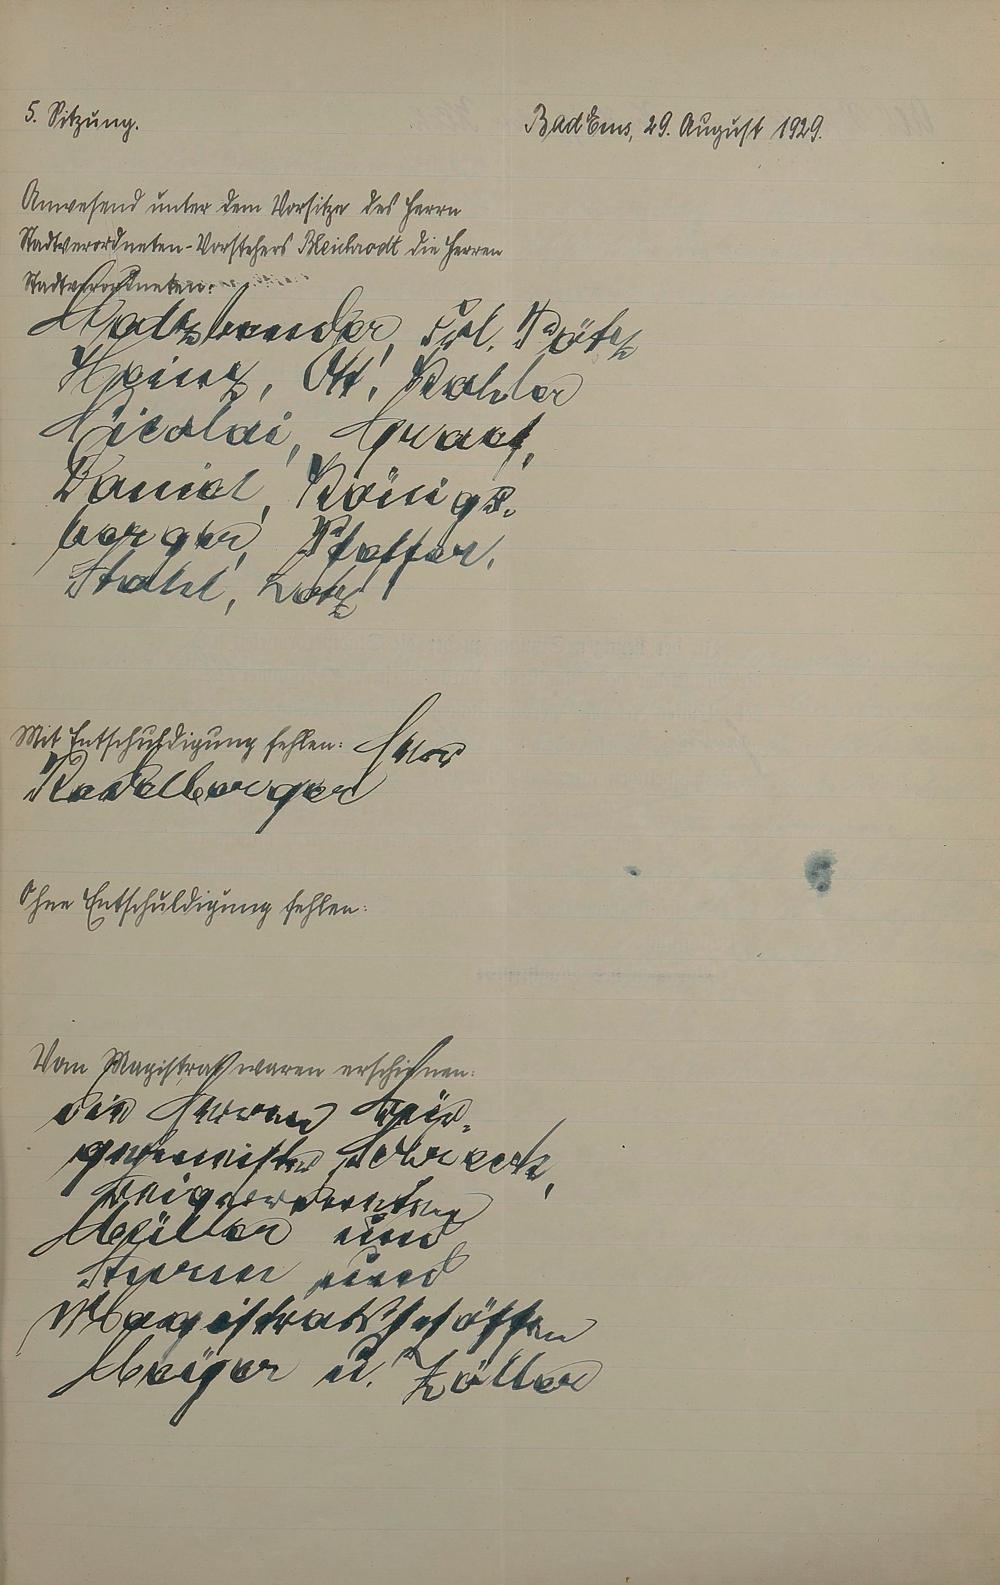 5. Sitzung.
Bad Ems, 29. August 1929.
Anwesend unter dem Vorsitze des Herrn
Stadtverordneten-Vorstehers die Herren
Stadtverordneten:
Frl.
Heinz, Ott, Kohler
Nicolai, Graaf,
Daniel, Königs-
berger, Pfeffer,
Stahl, Lotz
Mit Entschuldigung fehlen: Herr
Ohne Entschuldigung fehlen:
Vom Magistrat waren erschienen:
die Herren Bür-
germeister Schreck,
Beigeordneten
Müller und
Sturm und
Magistratsschöffen
Meyer u. Zöller